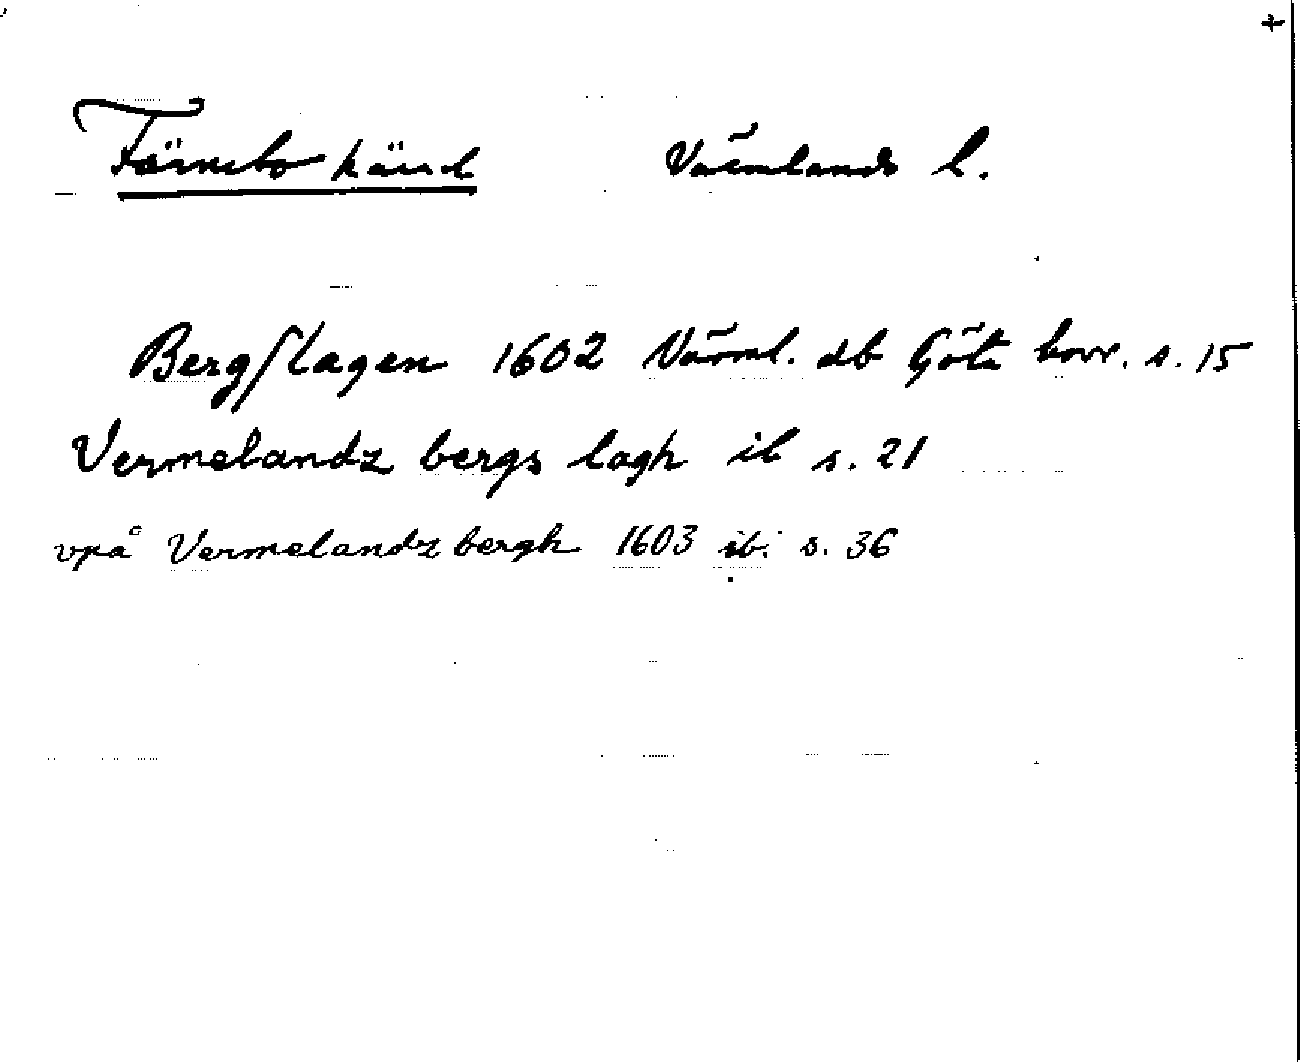 +
Färnebo härad Värmlands l.
Bergslagen 1602 Värml. db Göta hovr. s. 15
Vermelandz bergs lagh ib s. 21
vpå Vermelandz bergh 1603 ib. s. 36